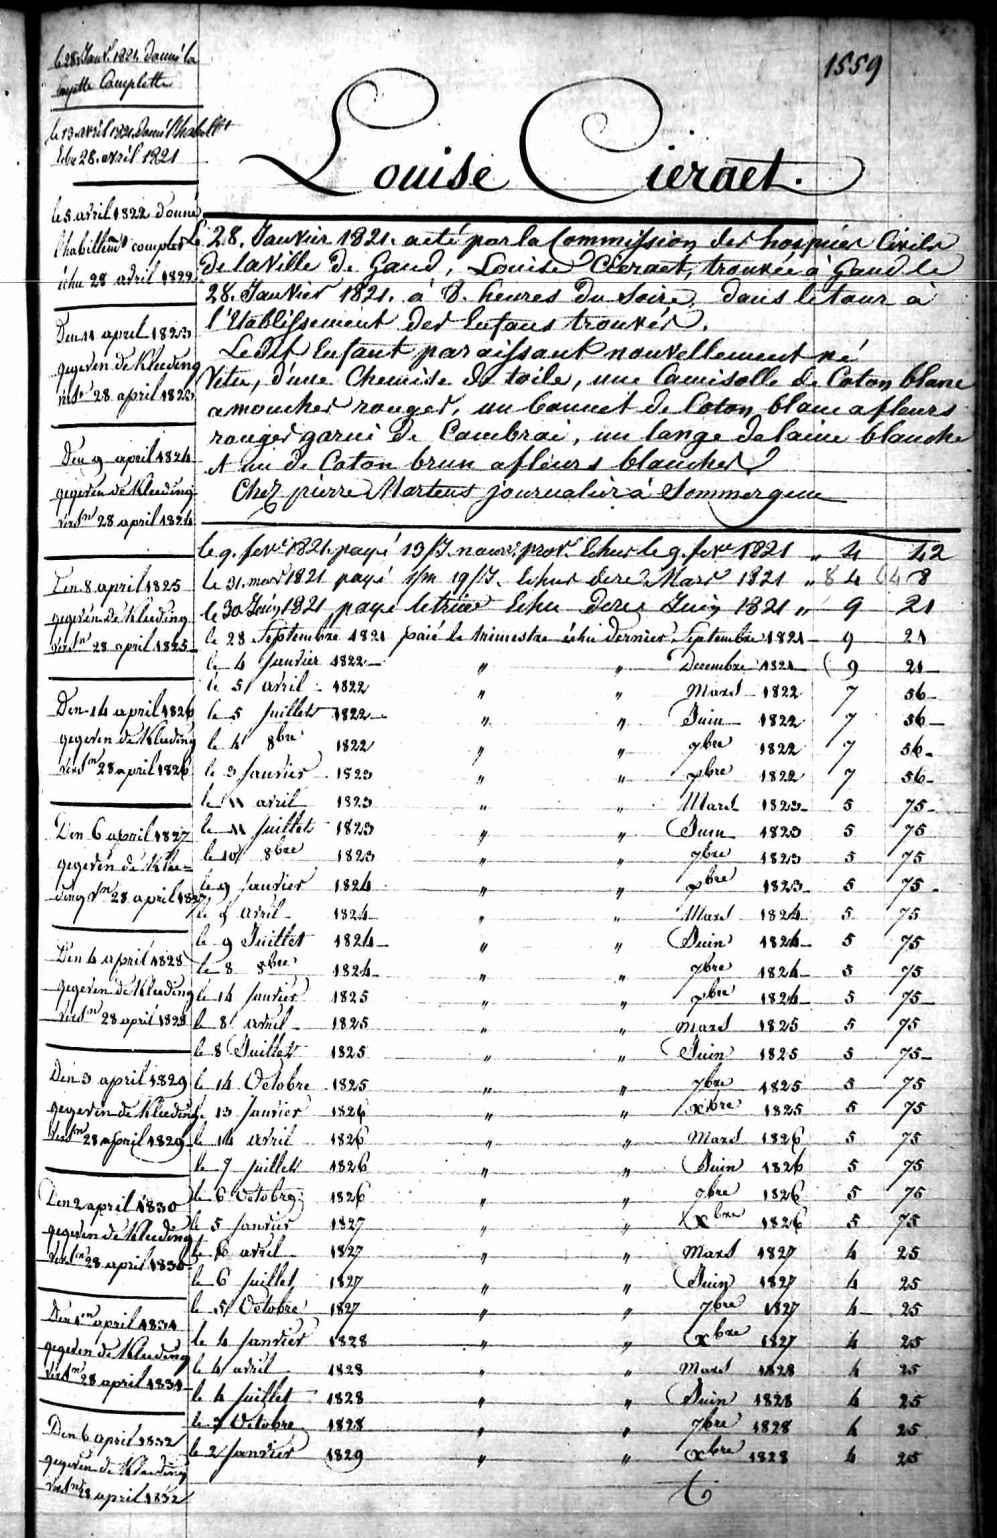 1559
Louise Cieraet.
le 28. Janvr. 1821. donné la
layette Complette
le 13. avril 1821. donné l'habillt
Echu 28. avril 1821
le 5 avril 1822 donné
l'habillemt complet
échu 28 avril 1822.
Den 11 april 1823
gegeven de Kleeding
28 april 1823
Den 9 april 1824
gegeven de Kleeding
28 april 1824
Den 8 april 1825
gegeven de Kleeding
28 april 1825
Den 14 april 1826
gegeven de Kleeding
28 april 1826
Den 6 april 1827
gegeven de Klee=
ding 28 april 1827
Den 4 april 1828
gegeven de Kleeding
28 april 1828
Den 3 april 1829
gegeven de Kleeding
28 april 1829
Den 2 april 1830
gegeven de Kleeding
28 april 1830
Den 1en april 1831
gegeven de Kleeding
28 april 1831
Den 6 april 1832
gegeven de Kleeding
28 april 1832
Le 28. Janvier 1821. acté par la Commission des hospices Civils
de la Ville de Gand, Louise Cieraet, trouvée à Gand le
28. Janvier 1821. à 8. heures du Soire, dans le tour à
l'Etablissement des Enfans trouvés.
Le dit Enfant paraissant nouvellement né
Vetu, d'une Chemise de toile, une Camisolle de Coton blanc
a mouches rouges, un bonnet de Coton blanc a fleurs
rouges garni de Cambrai, un lange de laine blanche
et un de Coton brun a fleurs blanches
Chez pierre Martens journalier à Sommergem
le 9. fevr. 1821. payé 13/J. Echus le 9. fevr 1821 " 4 42
le 31. mars 1821 payé 19/J. Echus Mars 1821 " 8 4 8
le 30 Juin 1821 payé le trime Echu Juin 1821 " 9 21
le 28 Septembre 1821 paié le trimestre échu dernier Septembre 1821 - 9 21
le 4 Janvier 1822 " " Decembre 1821 9 21
le 5 avril 1822 " " Mars 1822 7 56
le 5 Juillet 1822 " " Juin 1822 7 56
le 4 8bre 1822 " " 7bre 1822 7 56
le 3 Janvier 1823 " " xbre 1822 7 56
le 11 avril 1823 " " Mars 1823 5 75
le 11 Juillet 1823 " " Juin 1823 5 75
le 10 8bre 1823 " " 7bre 1823 5 75
le 9 Janvier 1824 " " xbre 1823 5 75
le 9 avril 1824 " " Mars 1824 5 75
le 9 Juillet 1824 " " Juin 1824 5 75
le 8 8bre 1824 " " 7bre 1824 5 75
le 14 Janvier 1825 " " xbre 1824 5 75
le 8 avril 1825 " " Mars 1825 5 75
le 8 Juillet 1825 " " Juin 1825 5 75
le 14 Octobre 1825 " " 7bre 1825 5 75
le 13 Janvier 1826 " " xbre 1825 5 75
le 14 avril 1826 " " Mars 1826 5 75
le 7 Juillet 1826 " " Juin 1826 5 75
le 6 Octobre 1826 " " 7bre 1826 5 75
le 5 Janvier 1827 " " Xbre 1826 5 75
le 6 avril 1827 " " Mars 1827 4 25
le 6 Juillet 1827 " " Juin 1827 4 25
le 5 Octobre 1827 " " 7bre 1827 4 25
le 4 Janvier 1828 " " Xbre 1827 4 25
le 4 avril 1828 " " Mars 1828 4 25
le 4 Juillet 1828 " " Juin 1828 4 25
le 3 Octobre 1828 " " 7bre 1828 4 25
le 2 Janvier 1829 " " Xbre 1828 4 25